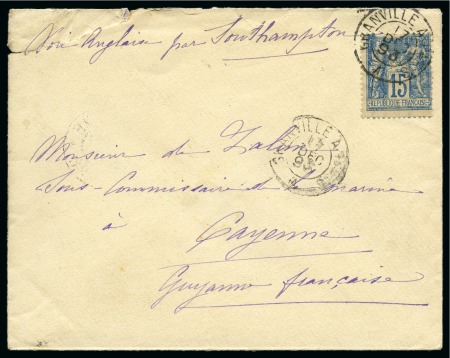 Voie Anglaise par Southampton
15
REPUBLIQUE FRANÇAISE
GRANVILLE A
Monsieur de Lalun
Sous-Commissaire de marine
à
Cayenne
Guyane française